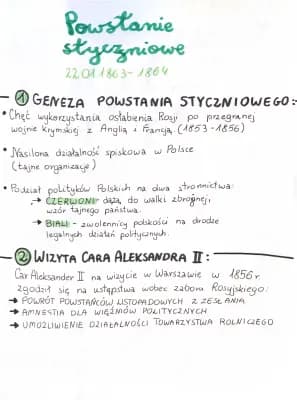 Powstanie
styczniowe
22.01.1863-1864
① GENEZA POWSTANIA STYCZNIOWEGO:
• Chęć wykorzystania osłabienia Rosji po przegranej
wojnie krymskiej z Anglią i Francją (1853-1856)
• Nasilona działalność spiskowa w Polsce
(tajne organizacje)
• Podział polityków Polskich na dwa stronnictwa:
→ CZERWONI - dążą do walki zbrojnej,
wzór tajnego państwa.
→ BIALI - zwolennicy polskości na drodze
legalnych działań politycznych.
② WIZYTA CARA ALEKSANDRA II:
Car Aleksander II na wizycie w Warszawie w 1856r.
zgodził się na ustępstwa wobec zaboru Rosyjskiego:
→ POWRÓT POWSTAŃCÓW LISTOPADOWYCH Z ZESŁANIA
→ AMNESTIA DLA WIĘŹNIÓW POLITYCZNYCH
→ UMOŻLIWIENIE DZIAŁALNOŚCI TOWARZYSTWA ROLNICZEGO